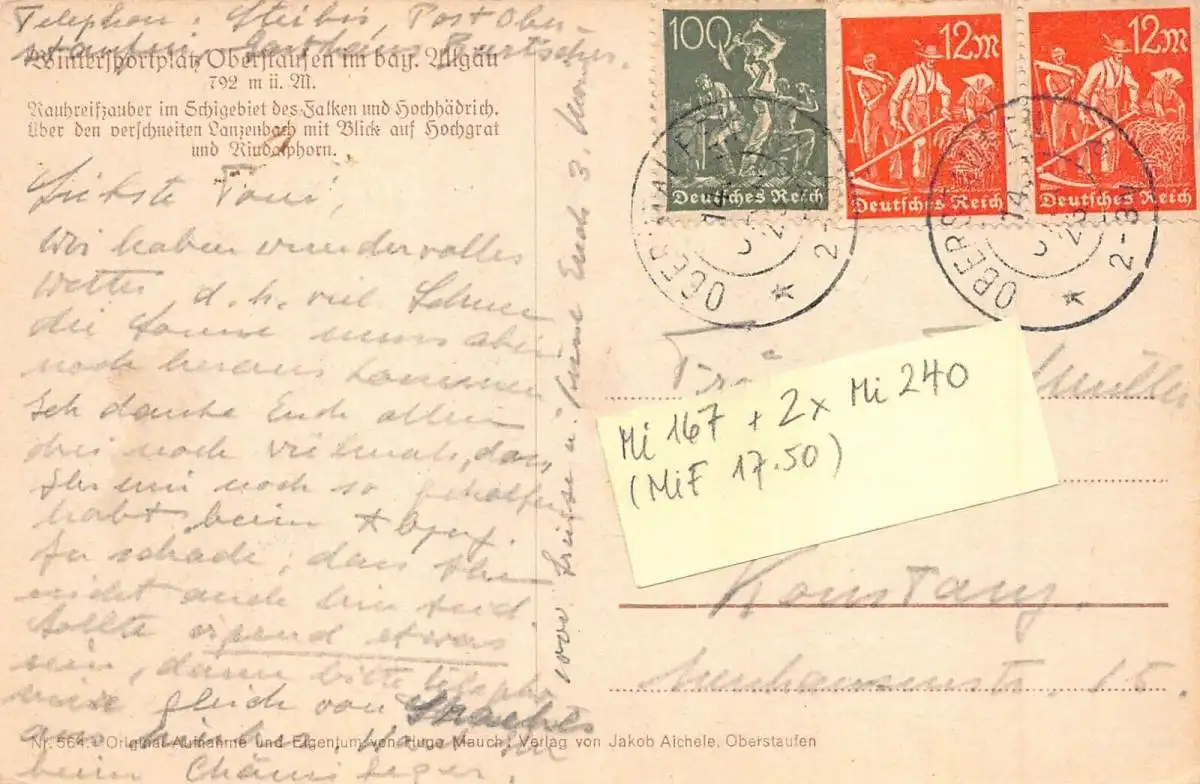 Telephon: Steibis, Post Ober-
staufen, Gasthaus
Wintersportplatz Oberstaufen im bay. Allgäu
792 m ü. M.
Rauhreifzauber im Schigebiet des Falken und Hochhädrich.
Über den verschneiten Lanzenbach mit Blick auf Hochgrat
und Rindalphorn.
Liebste Tomi,
Wir haben wundervolles
Wetter, d. h. viel Schnee
die Sonne muss aber
noch heraus kommen
Ich danke Euch allen
drei noch vielmals, dass
Ihr mir noch so geholfen
habt beim
Zu schade, dass Ihr
nicht auch hier seid.
Sollte irgend etwas
sein, dann bitte telepho
niere gleich von
aus
beim
1000 Grüsse u. Küsse Euch 3.
100
Deutsches Reich
12M
Deutsches Reich
12M
Deutsches Reich
OBERSTAUFEN
14.
2-3N
OBERSTAUFEN
14.
2-3N
Müller
Mi 167 + 2x Mi 240
(MiF 17.50)
Konstanz.
15.
Nr. 564. Original-Aufnahme und Eigentum von Hugo Mauch; Verlag von Jakob Aichele, Oberstaufen